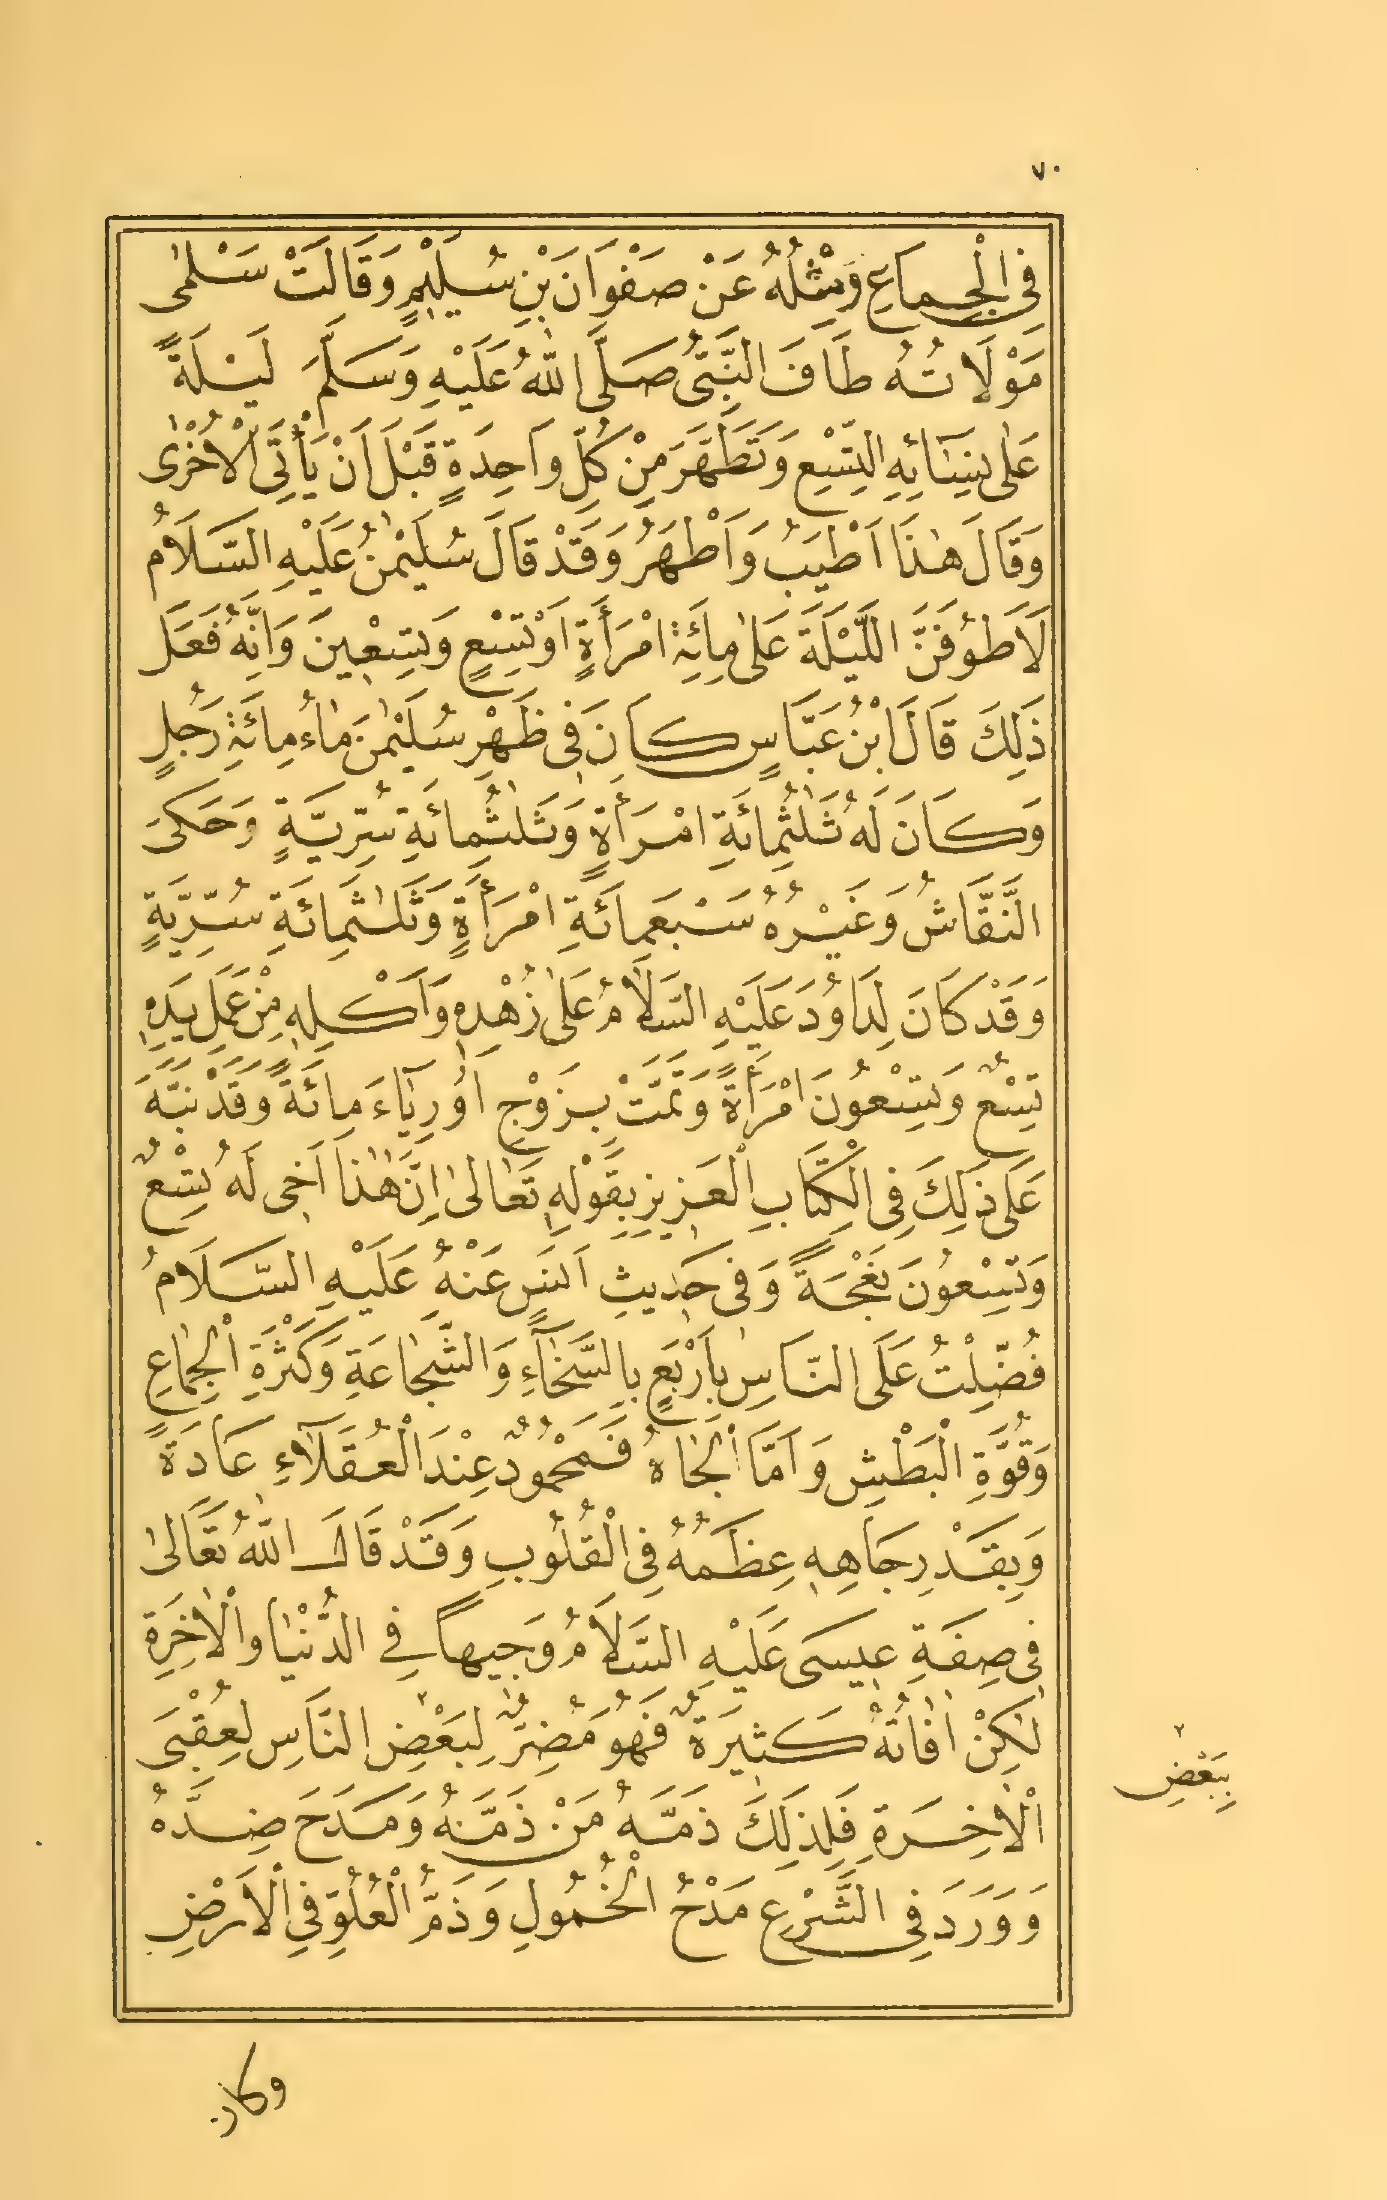 ٧٠
فِي الْجِمَاعِ وَمِثْلُهُ عَنْ صَفْوَانَ بْنِ سُلَيْمٍ وَقَالَتْ سَلْمٰى
مَوْلَاتُهُ طَافَ النَّبِيُّ صَلَّى اللّٰهُ عَلَيْهِ وَسَلَّمَ لَيْلَةً
عَلٰى نِسَائِهِ التِّسْعِ وَتَطَهَّرَ مِنْ كُلِّ وَاحِدَةٍ قَبْلَ اَنْ يَأْتِيَ الْاُخْرٰى
وَقَالَ هٰذَا اَطْيَبُ وَاَطْهَرُ وَقَدْ قَالَ سُلَيْمٰنُ عَلَيْهِ السَّلَامُ
لَاَطُوفَنَّ اللَّيْلَةَ عَلٰى مِائَةِ امْرَأَةٍ اَوْ تِسْعٍ وَتِسْعِينَ وَاَنَّهُ فَعَلَ
ذٰلِكَ قَالَ ابْنُ عَبَّاسٍ كَانَ فِي ظَهْرِ سُلَيْمٰنَ مَاءُ مِائَةِ رَجُلٍ
وَكَانَ لَهُ ثَلٰثُمِائَةِ امْرَأَةٍ وَثَلٰثُمِائَةِ سُرِّيَّةٍ وَحَكَى
النَّقَّاشُ وَغَيْرُهُ سَبْعَمِائَةِ امْرَأَةٍ وَثَلٰثَمِائَةِ سُرِّيَّةٍ
وَقَدْ كَانَ لِدَاوُدَ عَلَيْهِ السَّلَامُ عَلٰى زُهْدِهِ وَاَكْلِهِ مِنْ عَمَلِ يَدِهِ
تِسْعٌ وَتِسْعُونَ امْرَأَةً وَتَمَّتْ بِزَوْجِ اُورِيَاءَ مِائَةً وَقَدْ نَبَّهَ
عَلٰى ذٰلِكَ فِي الْكِتَابِ الْعَزِيزِ بِقَوْلِهِ تَعَالٰى اِنَّ هٰذَا اَخِي لَهُ تِسْعٌ
وَتِسْعُونَ نَعْجَةً وَفِي حَدِيثِ اَنَسٍ عَنْهُ عَلَيْهِ السَّلَامُ
فُضِّلْتُ عَلَى النَّاسِ بِاَرْبَعٍ بِالسَّخَآءِ وَالشَّجَاعَةِ وَكَثْرَةِ الْجِمَاعِ
وَقُوَّةِ الْبَطْشِ وَاَمَّا الْجَاهُ فَمَحْمُودٌ عِنْدَ الْعُقَلَآءِ عَادَةً
وَبِقَدْرِ جَاهِهِ عِظَمُهُ فِي الْقُلُوبِ وَقَدْ قَالَ اللّٰهُ تَعَالٰى
فِي صِفَةِ عِيسَى عَلَيْهِ السَّلَامُ وَجِيهاً فِي الدُّنْيَا وَالْاٰخِرَةِ
لٰكِنْ اٰفَاتُهُ كَثِيرَةٌ فَهُوَ مُضِرٌّ لِبَعْضِ النَّاسِ لِعُقْبَى
الْاٰخِرَةِ فَلِذٰلِكَ ذَمَّهُ مَنْ ذَمَّهُ وَمَدَحَ ضِدَّهُ
وَوَرَدَ فِي الشَّرْعِ مَدْحُ الْخُمُولِ وَذَمُّ الْعُلُوِّ فِي الْاَرْضِ
٢
بِبَعْضِ
وكان